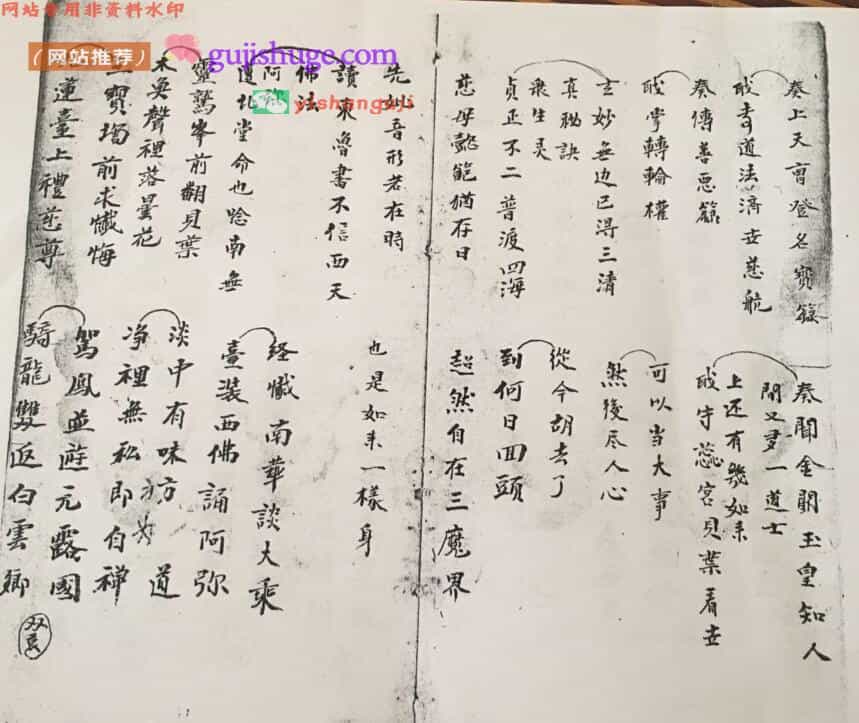 网站专用非资料水印
(网站推荐)
gujishuge.com
yishanguji
奏上天曹登名寶籙
或寿道法濟世慈航
奏傳善恶籙
或掌轉輪權
玄妙無边已得三清
真秘訣
衆生灵
貞正不二普渡四海
慈母懿範猶存日
先妣吾形若在時
讀來魯書不信西天
佛法
阿弥
還北堂命也唸南無
靈鷲峯前翻貝葉
木魚聲裡落曇花
三寶場前求懺悔
蓮臺上禮慈尊
奏聞金闕玉皇知人
間又多一道士
上还有幾如来
或守蕊宮貝葉看世
可以当大事
然後尽人心
從今胡去了
到何日回頭
超然自在三魔界
也是如来一樣身
经懺南華談大乘
臺装西佛誦阿弥
淡中有味方为道
净裡無私即自禅
駕鳳並遊元露國
騎龍雙返白雲鄉
双亡